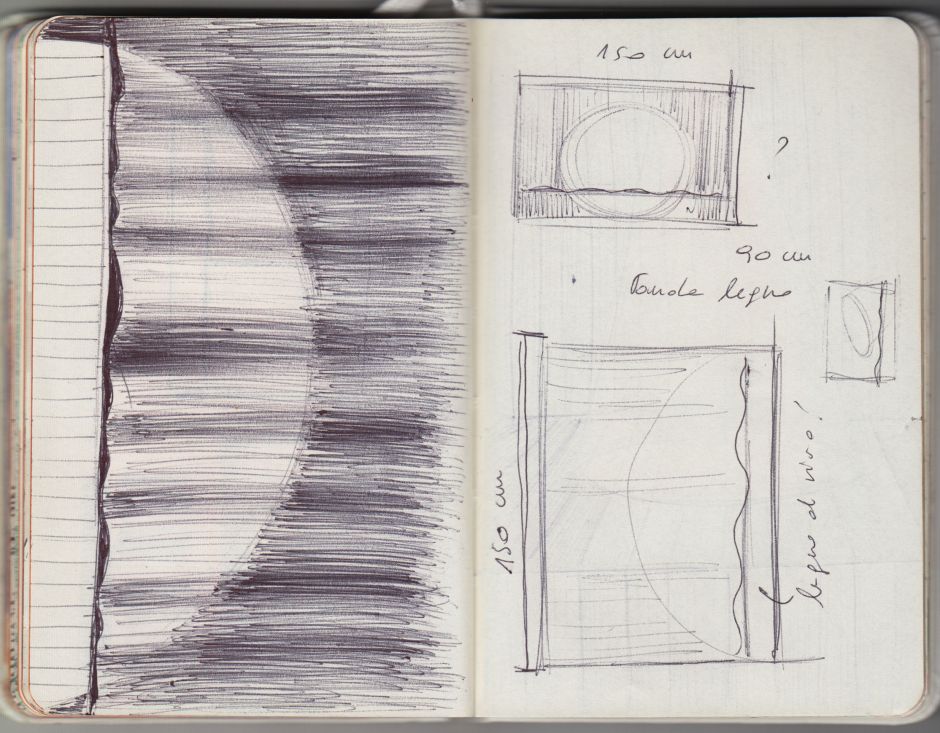 150 cm
?
90 cm
Tavola legno
150 cm
legno al vivo!